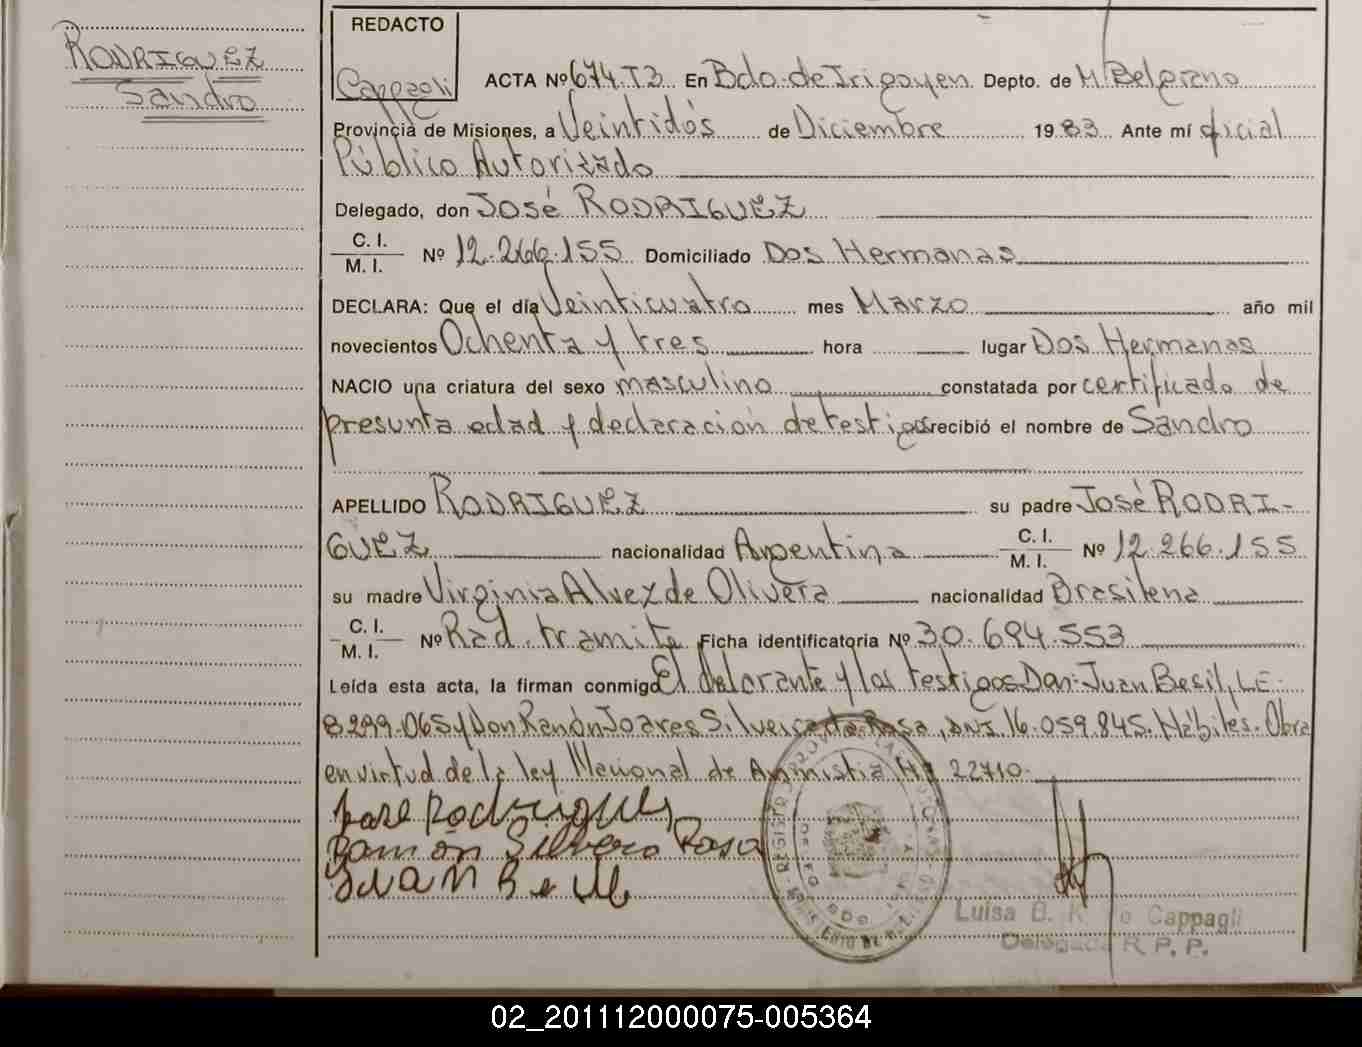 RODRIGUEZ
Sandro
REDACTO
Cappagli
ACTA Nº 674.T3. En Bdo. de Irigoyen. Depto. de M. Belgrano
Provincia de Misiones, a Veintidós de Diciembre 1983 Ante mí oficial
Público Autorizado
Delegado, don José RODRIGUEZ
C. I.
M. I. Nº 12.266.155 Domiciliado Dos Hermanas
DECLARA: Que el día Veinticuatro mes Marzo año mil
novecientos Ochenta y tres hora lugar Dos Hermanas
NACIO una criatura del sexo masculino constatada por certificado de
presunta edad y declaración de testigos recibió el nombre de Sandro
APELLIDO RODRIGUEZ su padre José RODRI-
GUEZ nacionalidad Argentina C. I.
M. I. Nº 12.266.155
su madre Virginia Alvez de Olivera nacionalidad Brasilena
C. I.
M. I. Nº Rad. tramite Ficha identificatoria Nº 30.694.553
Leída esta acta, la firman conmigo El delarante y los testigos Don: Juan Besil, LE.
8299.065 y Don Ramón Joares Silveira da Rosa, DNI. 16.059.845. Hábiles. Obra
en virtud de la ley Nacional de Amnistia Nº 22710.
Jose Rodrigues
Ramón Silvero Rosa
JUAN
Luisa B. K. de Cappagli
Delegada R. P. P.
02_201112000075-005364